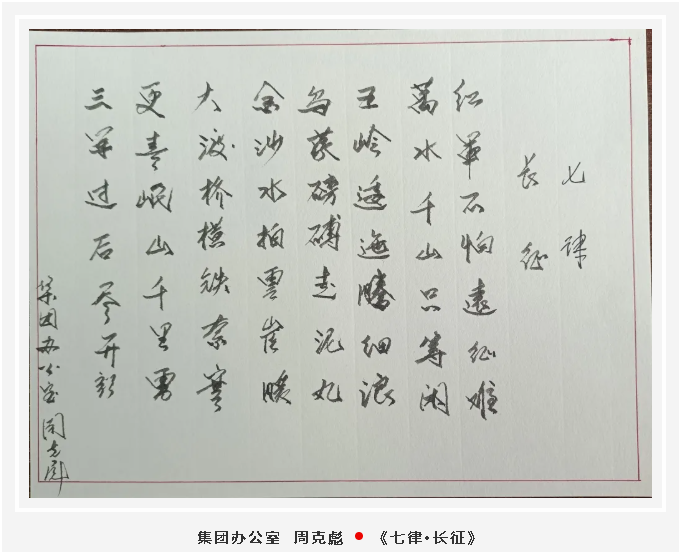 七律
长征
红军不怕遠征难
萬水千山只等闲
五岭逶迤腾细浪
乌蒙磅礴走泥丸
金沙水拍雲崖暖
大渡桥横铁索寒
更喜岷山千里雪
三军过后尽开颜
集团办公室 周克彪
集团办公室 周克彪 ● 《七律·长征》